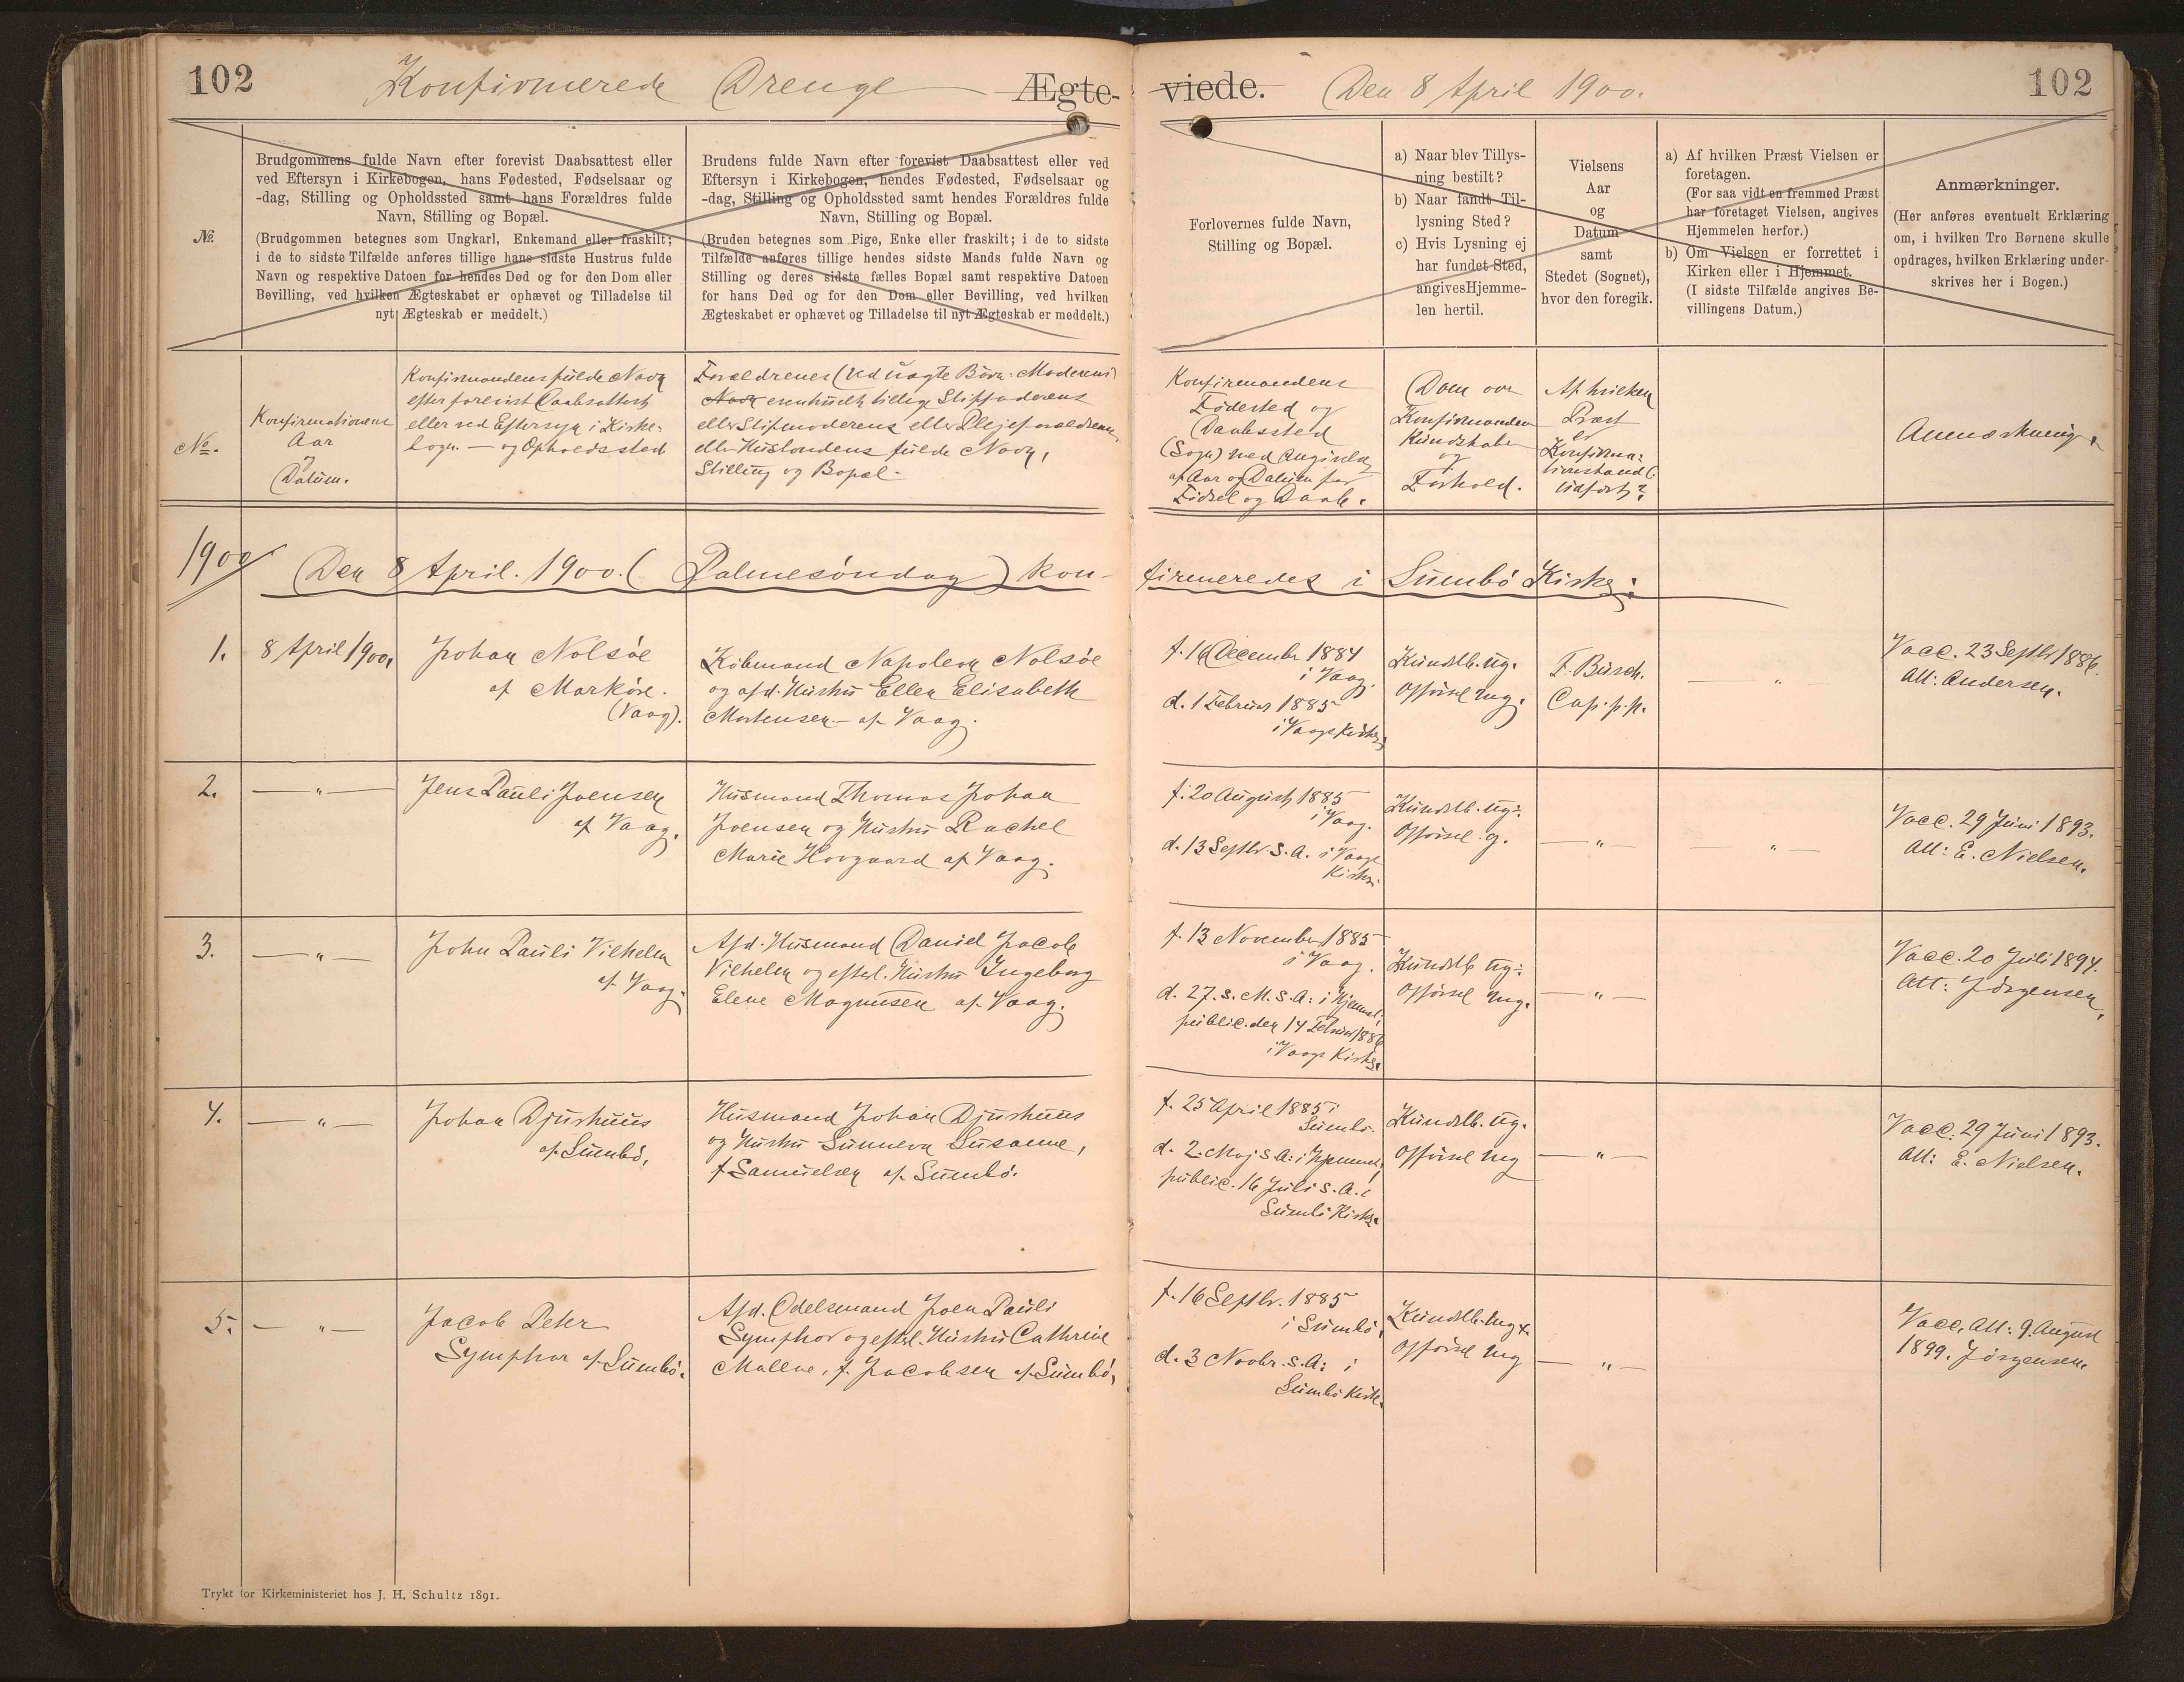 102
Konfirmerede Drenge
Ægte-
Brudgommens fulde Navn efter forevist Daabsattest eller
ved Eftersyn i Kirkebogen, hans Fødested, Fødselsaar og
-dag, Stilling og Opholdssted samt hans Forældres fulde
Navn, Stilling og Bopæl.
(Brudgommen betegnes som Ungkarl, Enkemand eller fraskilt;
i de to sidste Tilfælde anføres tillige hans sidste Hustrus fulde
Navn og respektive Datoen for hendes Død og for den Dom eller
Bevilling, ved hvilken Ægteskabet er ophævet og Tilladelse til
nyt Ægteskab er meddelt.)
№.
Brudens fulde Navn efter forevist Daabsattest eller ved
Eftersyn i Kirkebogen, hendes Fødested, Fødselsaar og
-dag, Stilling og Opholdssted samt hendes Forældres fulde
Navn, Stilling og Bopæl.
(Bruden betegnes som Pige, Enke eller fraskilt; i de to sidste
Tilfælde anføres tillige hendes sidste Mands fulde Navn og
Stilling og deres sidste fælles Bopæl samt respektive Datoen
for hans Død og for den Dom eller Bevilling, ved hvilken
Ægteskabet er ophævet og Tilladelse til nyt Ægteskab er meddelt.)
No.
Konfirmationens
Aar
og
Datum.
Konfirmandens fulde Navn
efter forevist Daabsattest
eller ved Eftersyn i Kirke-
bogen. — og Opholdssted
Forældrenes (ved uægte Børn: Moderens)
Navn eventuelt tillige Stiffaderens
eller Stifmoderens eller Plejeforældrenes,
eller Husbondens fulde Navn,
Stilling og Bopæl.
1900
Den 8 April. 1900. (Palmesöndag) kon-
1.
8 April 1900,
Johan Nolsöe
af Marköre.
(Vaag).
Köbmand Napoleon Nolsöe
og afd. Hustru Ellen Elisabeth
Mortensen – af Vaag.
2.
— " —
Jens Pauli Joensen
af Vaag.
Husmand Thomas Johan
Joensen og Hustru Rachel
Marie Hovgaard af Vaag.
3.
— " —
John Pauli Vilhelm
af Vaag.
Afd. Husmand Daniel Jacob
Vilhelm og efterl. Hustru Ingeborg
Elene Magnusen af Vaag.
4.
— " —
Johan Djurhuus
af Sumbö.
Husmand Johan Djurhuus
og Hustru Sunneva Susanne,
f. Samuelsen af Sumbö.
5.
— " —
Jacob Peter
Symphor af Sumbö.
Afd. Odelsmand Joen Pauli
Symphor og efterl. Hustru Cathrine
Malene, f. Jacobsen af Sumbö,
Trykt for Kirkeministeriet hos J. H. Schultz 1891.
viede.
Den 8 April 1900.
102
Forlovernes fulde Navn,
Stilling og Bopæl.
a) Naar blev Tillys-
ning bestilt?
b) Naar fandt Til-
lysning Sted?
c) Hvis Lysning ej
har fundet Sted,
angives Hjemme-
len hertil.
Vielsens
Aar
og
Datum
samt
Stedet (Sognet),
hvor den foregik.
a) Af hvilken Præst Vielsen er
foretagen.
(For saa vidt en fremmed Præst
har foretaget Vielsen, angives
Hjemmelen herfor.)
b) Om Vielsen er forrettet i
Kirken eller i Hjemmet.
(I sidste Tilfælde angives Be-
villingens Datum.)
Anmærkninger.
(Her anføres eventuelt Erklæring
om, i hvilken Tro Børnene skulle
opdrages, hvilken Erklæring under-
skrives her i Bogen.)
Konfirmandens
Födested og
Daabssted
(Sogn) med Angivelse
af Aar og Datum for
Födsel og Daab.
Dom over
Konfirmandens
Kundskaber
og
Forhold.
Af hvilken
Præst
er
Konfirma-
tionshandl:
udfört?
Anmærkninger
firmeredes i Sumbö Kirke:
f. 16 December 1884
i Vaag.
d. 1 Februar 1885
i Vaags Kirke.
Kundsk. ug.
Opförsel mg.
F. Busch.
Cap. p. p.
— " —
Vacc. 23 Septbr 1886.
Att: Andersen.
f. 20 August 1885
i Vaag.
d. 13 Septbr. s. A. i Vaags
Kirke.
Kundsk. ug.
Opförsel g.
— " —
— " —
Vacc. 29 Juni 1893.
Att: E. Nielsen.
f. 13 November 1885
i Vaag.
d. 27. s. M. s. A: i Hjemmet;
public. den 14 Februar 1886
i Vaags Kirke.
Kundsk ug.
Opförsel mg.
— " —
Vacc. 20 Juli 1894.
Att: Jörgensen,
f. 25 April 1885 i
Sumbö.
d. 2. Maj s. A: i Hjemmet;
public. 16 Juli s. A. i
Sumbö Kirke.
Kundsk. ug.
Opförsel mg
— " —
Vacc: 29 Juni 1893.
Att: E. Nielsen.
f. 16 Septbr. 1885
i Sumbö,
d. 3 Novbr. s. A: i
Sumbö Kirke.
Kundsk. mg+
Opförsel mg
— " —
Vacc. Att: 9. August
1899. Jörgensen.